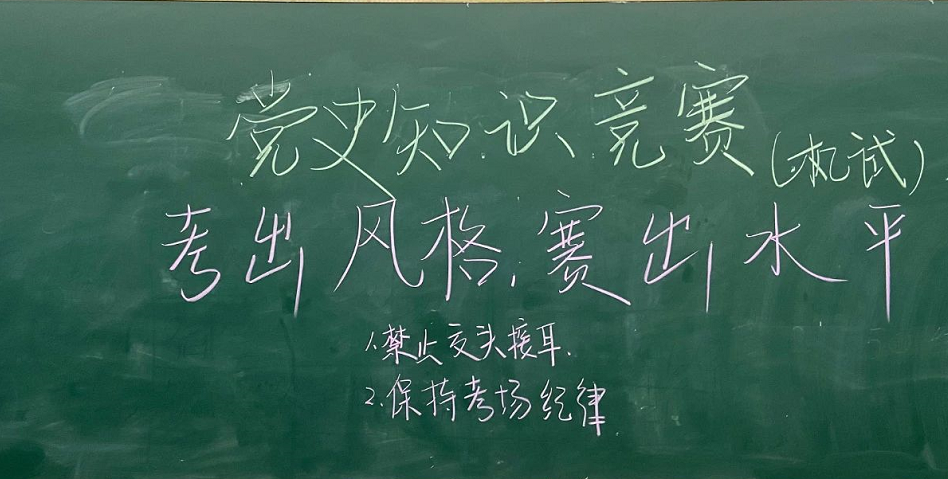 党史知识竞赛(机试)
考出风格,赛出水平
1.禁止交头接耳.
2.保持考场纪律